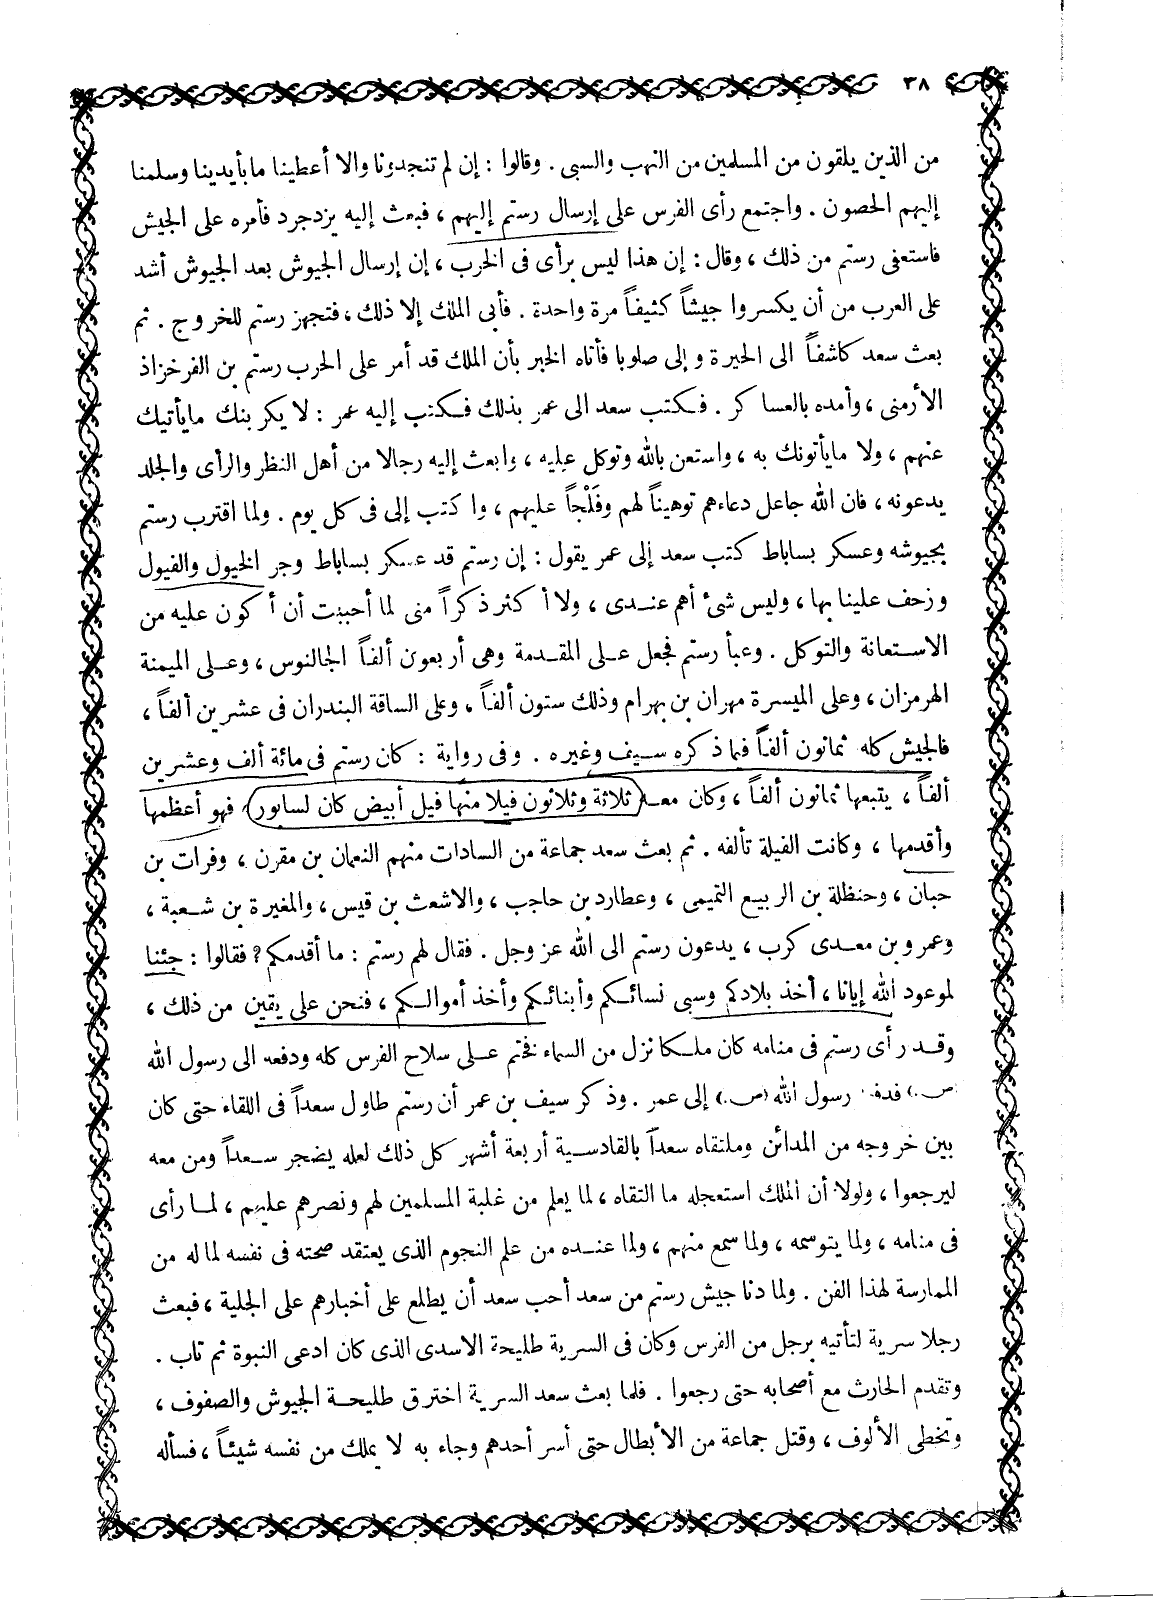 ٣٨
من الذين يلقون من المسلمين من النهب والسبى . وقالوا : إن لم تنجدونا والا أعطينا ما بأيدينا وسلمنا
إليهم الحصون . واجتمع رأى الفرس على إرسال رستم إليهم ، فبعث إليه يزدجرد فأمره على الجيش
فاستعفى رستم من ذلك ، وقال : إن هذا ليس برأى فى الحرب ، إن إرسال الجيوش بعد الجيوش أشد
على العرب من أن يكسروا جيشاً كثيفاً مرة واحدة . فأبى الملك إلا ذلك ، فتجهز رستم للخروج . ثم
بعث سعد كاشفاً الى الحيرة وإلى صلوبا فأتاه الخبر بأن الملك قد أمر على الحرب رستم بن الفرخزاذ
الأرمنى ، وأمده بالعساكر . فكتب سعد الى عمر بذلك فكتب إليه عمر : لا يكربنك ما يأتيك
عنهم ، ولا ما يأتونك به ، واستعن بالله وتوكل عليه ، وابعث إليه رجالا من أهل النظر والرأى والجلد
يدعونه ، فان الله جاعل دعاءهم توهيناً لهم وفَلْجاً عليهم ، واكتب إلى فى كل يوم . ولما اقترب رستم
بجيوشه وعسكر بساباط كتب سعد إلى عمر يقول : إن رستم قد عسكر بساباط وجر الخيول والفيول
وزحف علينا بها ، وليس شئ أهم عندى ، ولا أكثر ذكراً منى لما أحببت أن أكون عليه من
الاستعانة والتوكل . وعبأ رستم فجعل على المقدمة وهى أربعون ألفاً الجالنوس ، وعلى الميمنة
الهرمزان ، وعلى الميسرة مهران بن بهرام وذلك ستون ألفاً ، وعلى الساقة البندران فى عشرين ألفاً ،
فالجيش كله ثمانون ألفاً فيما ذكره سيف وغيره . وفى رواية : كان رستم فى مائة ألف وعشرين
ألفاً ، يتبعها ثمانون ألفاً ، وكان معه ثلاثة وثلاثون فيلا منها فيل أبيض كان لسابور ، فهو أعظمها
وأقدمها ، وكانت الفيلة تألفه . ثم بعث سعد جماعة من السادات منهم النعمان بن مقرن ، وفرات بن
حبان ، وحنظلة بن الربيع التميمى ، وعطارد بن حاجب ، والاشعث بن قيس ، والمغيرة بن شعبة ،
وعمرو بن معدى كرب ، يدعون رستم الى الله عز وجل . فقال لهم رستم : ما أقدمكم ؟ فقالوا : جئنا
لموعود الله إيانا ، أخذ بلادكم وسبى نسائكم وأبنائكم وأخذ أموالكم ، فنحن على يقين من ذلك ،
وقد رأى رستم فى منامه كان ملكا نزل من السماء فختم على سلاح الفرس كله ودفعه الى رسول الله
(ص .) فدفعه رسول الله (ص .) إلى عمر . وذكر سيف بن عمر أن رستم طاول سعداً فى اللقاء حتى كان
بين خروجه من المدائن وملتقاه سعداً بالقادسية أربعة أشهر كل ذلك لعله يضجر سعداً ومن معه
ليرجعوا ، ولولا أن الملك استعجله ما التقاه ، لما يعلم من غلبة المسلمين لهم ونصرهم عليهم ، لما رأى
فى منامه ، ولما يتوسمه ، ولما سمع منهم ، ولما عنده من علم النجوم الذى يعتقد صحته فى نفسه لما له من
الممارسة لهذا الفن . ولما دنا جيش رستم من سعد أحب سعد أن يطلع على أخبارهم على الجلية ، فبعث
رجلا سرية لتأتيه برجل من الفرس وكان فى السرية طليحة الاسدى الذى كان ادعى النبوة ثم تاب .
وتقدم الحارث مع أصحابه حتى رجعوا . فلما بعث سعد السرية اخترق طليحة الجيوش والصفوف ،
وتخطى الألوف ، وقتل جماعة من الأبطال حتى أسر أحدهم وجاء به لا يملك من نفسه شيئاً ، فسأله